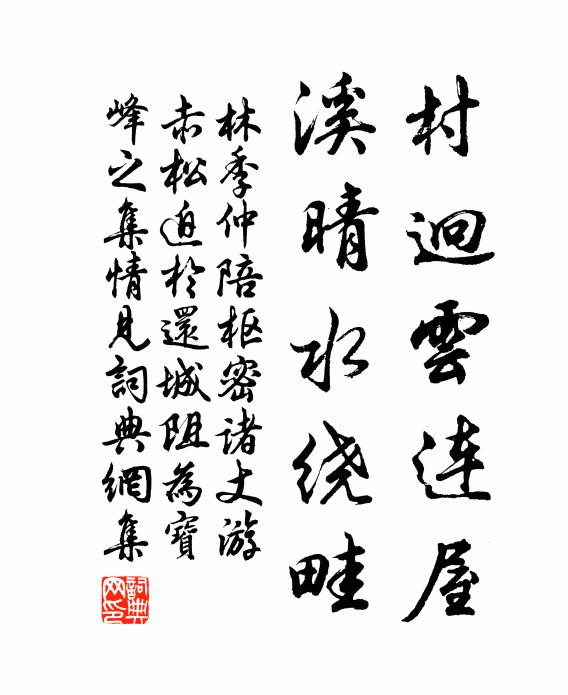 村迥雲连屋
溪晴水绕畦
林季仲陪枢密诸丈游
赤松迫於還城阻為寶
峰之集情見詞典網集
詞典网印